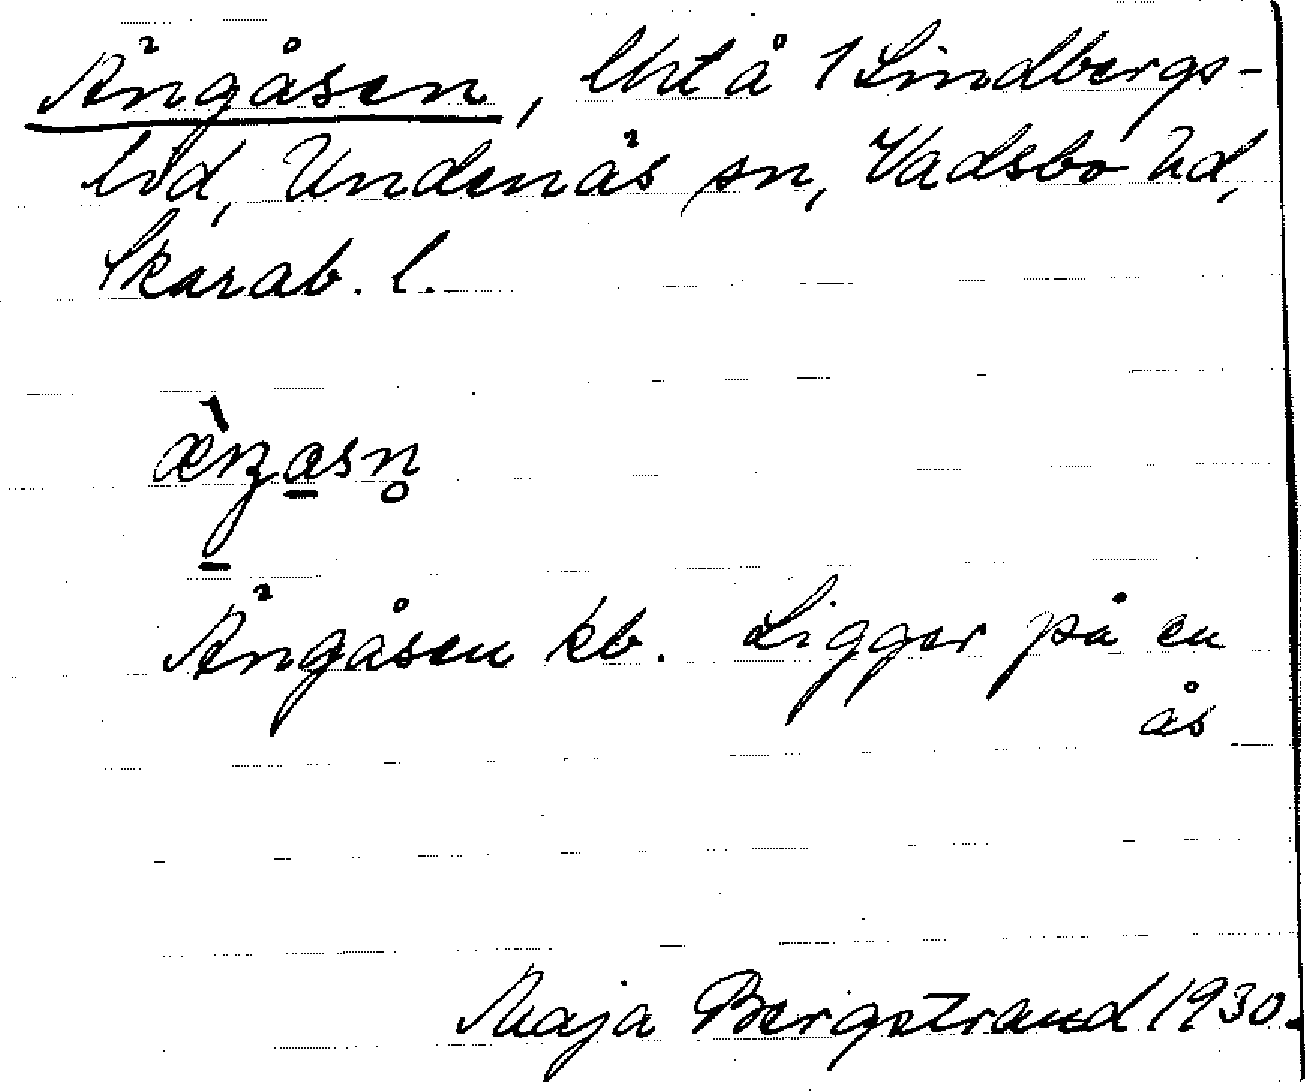 Ängåsen, lht å 1 Lindbergs-
lid, Undenäs sn, Vadsbo hd,
Skarab. l.
æ̀nasn̥
Ängåsen kb. Ligger på en
ås
Maja Bergstrand 1930.